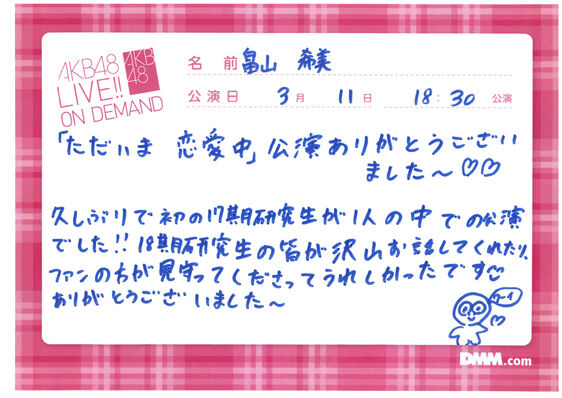 AKB48
LIVE!!
ON DEMAND
AKB
48
名 前 畠山 希美
公演日 3月 11日 18:30 公演
「ただいま 恋愛中」公演ありがとうござい
ました〜♡♡
久しぶりで初の17期研究生が1人の中での公演
でした!!18期研究生の皆が沢山お話してくれたり、
ファンの方が見守ってくださってうれしかったです
ありがとうございました〜
ワーイ
DMM.com